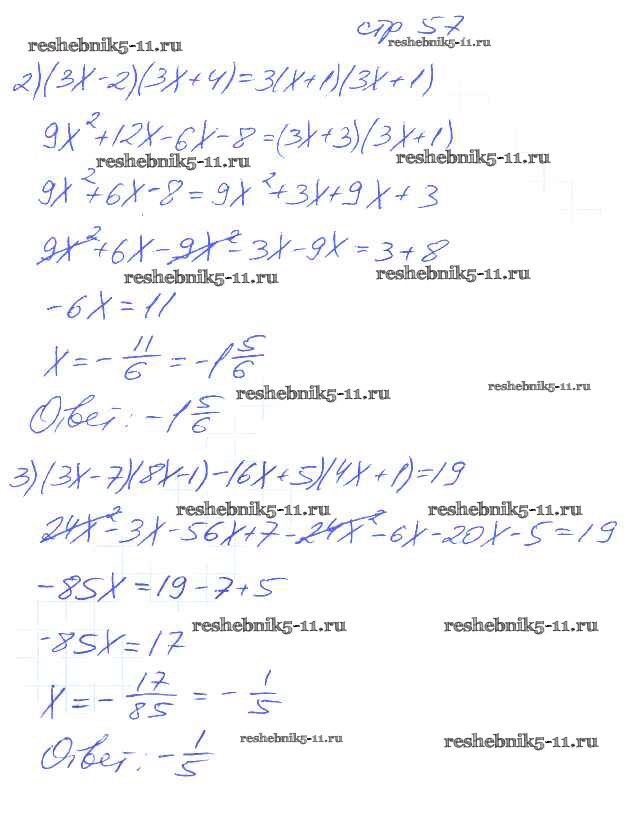 стр 57
reshebnik5-11.ru
reshebnik5-11.ru
2) (3x-2)(3x+4)=3(x+1)(3x+1)
9x²+12x-6x-8=(3x+3)(3x+1)
reshebnik5-11.ru
reshebnik5-11.ru
9x²+6x-8=9x²+3x+9x+3
9x²+6x-9x²-3x-9x=3+8
reshebnik5-11.ru
reshebnik5-11.ru
-6x=11
x=-11/6=-1 5/6
reshebnik5-11.ru
reshebnik5-11.ru
Ответ: -1 5/6
3) (3x-7)(8x-1)-(6x+5)(4x+1)=19
reshebnik5-11.ru
reshebnik5-11.ru
24x²-3x-56x+7-24x²-6x-20x-5=19
-85x=19-7+5
reshebnik5-11.ru
reshebnik5-11.ru
-85x=17
x=-17/85=-1/5
reshebnik5-11.ru
reshebnik5-11.ru
Ответ: -1/5